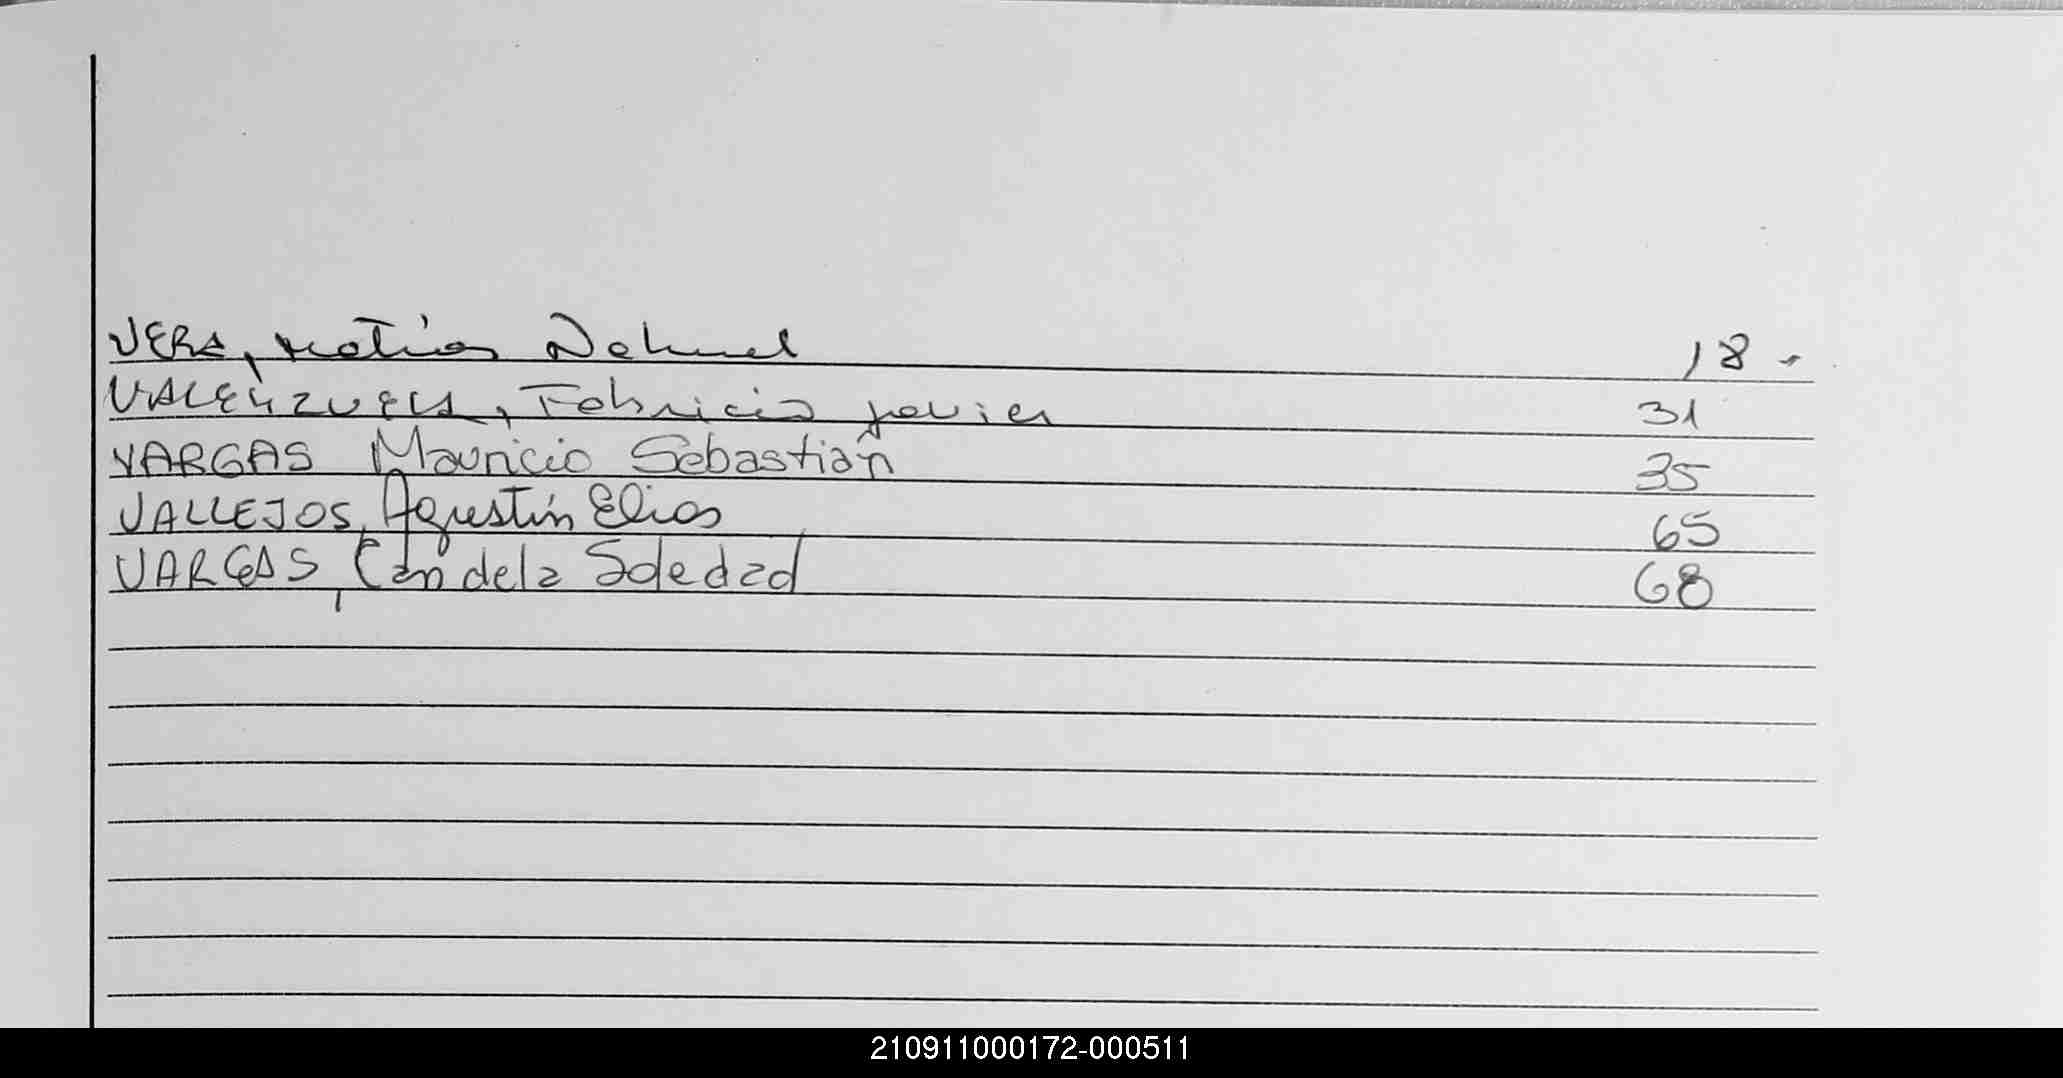 VERA, Matías Nahuel 18 -
VALENZUELA, Fabricio Javier 31
VARGAS Mauricio Sebastián 35
VALLEJOS, Agustín Elias 65
VARGAS, Candela Soledad 68
210911000172-000511